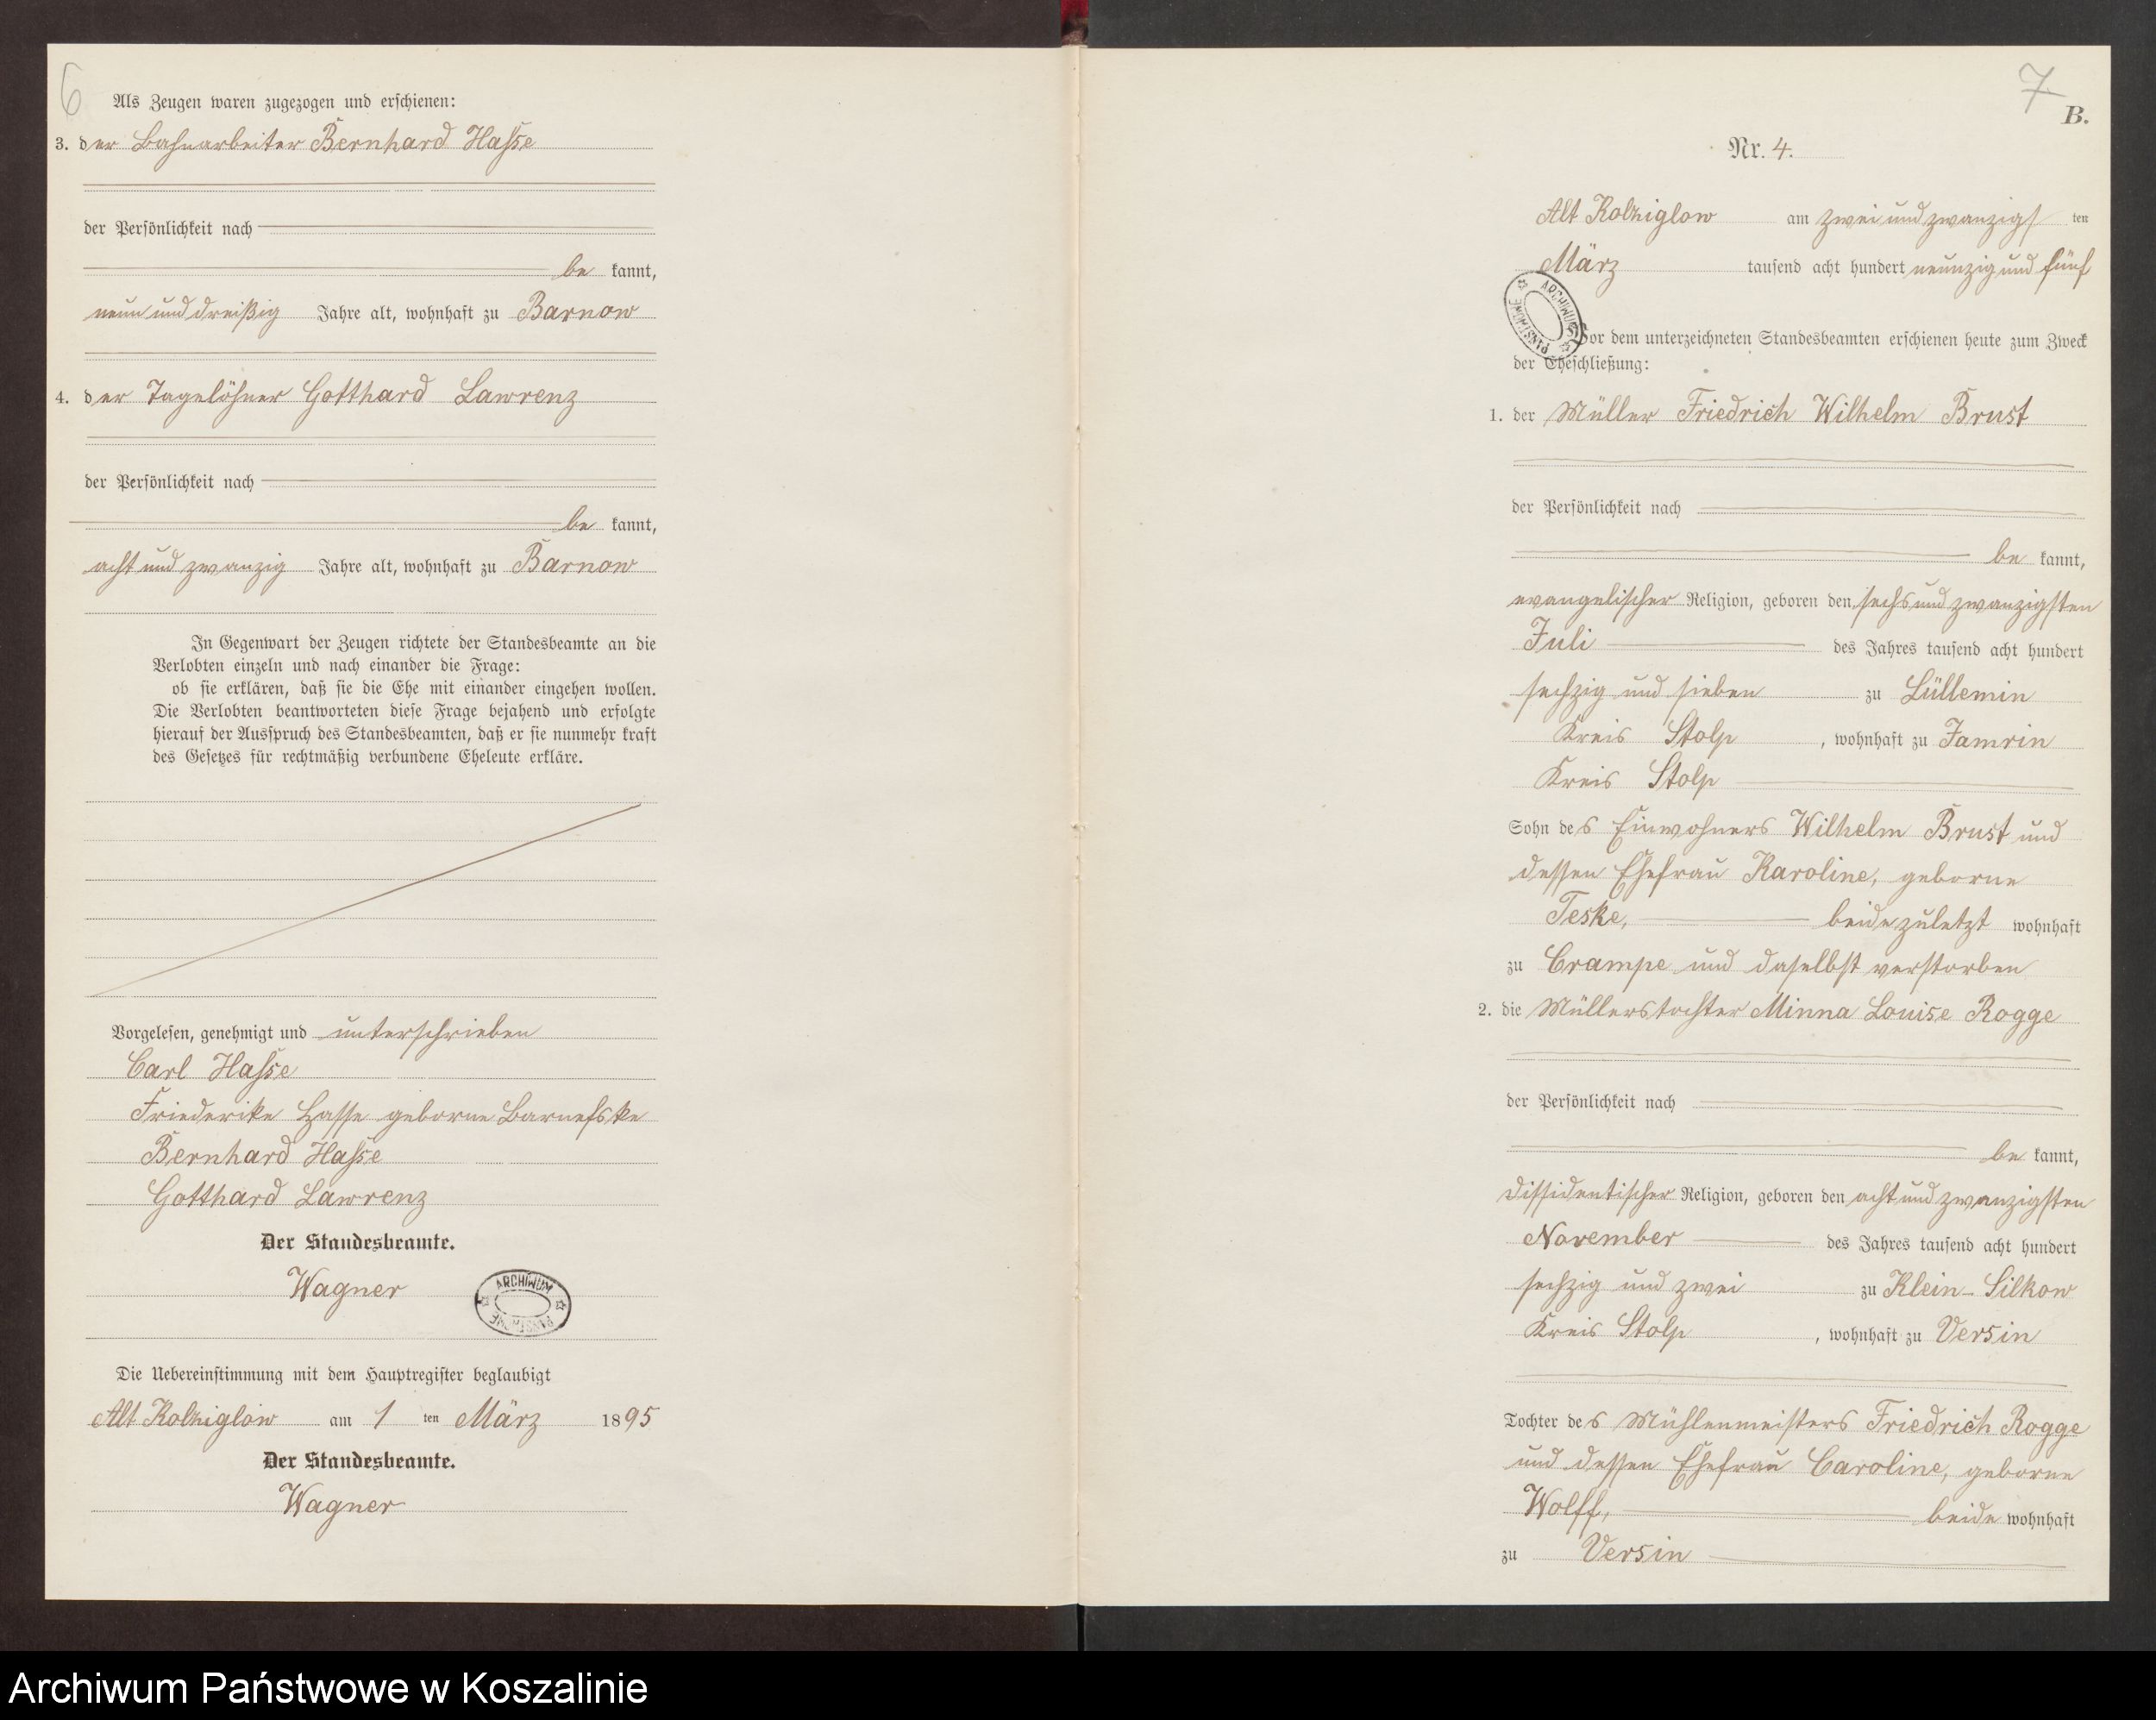 6
Als Zeugen waren zugezogen und erschienen:
3. der Bahnarbeiter Bernhard Hasse
der Persönlichkeit nach
be kannt,
neun und dreißig Jahre alt, wohnhaft zu Barnow
4. der Tagelöhner Gotthard Lawrenz
der Persönlichkeit nach
be kannt,
acht und zwanzig Jahre alt, wohnhaft zu Barnow
In Gegenwart der Zeugen richtete der Standesbeamte an die
Verlobten einzeln und nach einander die Frage:
ob sie erklären, daß sie die Ehe mit einander eingehen wollen.
Die Verlobten beantworteten diese Frage bejahend und erfolgte
hierauf der Ausspruch des Standesbeamten, daß er sie nunmehr kraft
des Gesetzes für rechtmäßig verbundene Eheleute erkläre.
Vorgelesen, genehmigt und unterschrieben
Carl Hasse
Friederike Hasse geborne Barnefske
Bernhard Hasse
Gotthard Lawrenz
Der Standesbeamte.
Wagner
ARCHIWUM PAŃSTWOWE
Die Uebereinstimmung mit dem Hauptregister beglaubigt
Alt Kolziglow am 1 ten März 1895
Der Standesbeamte.
Wagner
7
B.
Nr. 4.
Alt Kolziglow am zwei und zwanzigst ten
März tausend acht hundert neunzig und fünf
ARCHIWUM PAŃSTWOWE
Vor dem unterzeichneten Standesbeamten erschienen heute zum Zweck
der Eheschließung:
1. der Müller Friedrich Wilhelm Brust
der Persönlichkeit nach
be kannt,
evangelischer Religion, geboren den sechs und zwanzigsten
Juli des Jahres tausend acht hundert
sechzig und sieben zu Lüllemin
Kreis Stolp, wohnhaft zu Jamrin
Kreis Stolp
Sohn des Einwohners Wilhelm Brust und
dessen Ehefrau Karoline, geborne
Teske, beide zuletzt wohnhaft
zu Crampe und daselbst verstorben
2. die Müllerstochter Minna Louise Rogge
der Persönlichkeit nach
be kannt,
dissidentischer Religion, geboren den acht und zwanzigsten
November des Jahres tausend acht hundert
sechzig und zwei zu Klein-Silkow
Kreis Stolp, wohnhaft zu Versin
Tochter des Mühlenmeisters Friedrich Rogge
und dessen Ehefrau Caroline, geborne
Wolff, beide wohnhaft
zu Versin
Archiwum Państwowe w Koszalinie